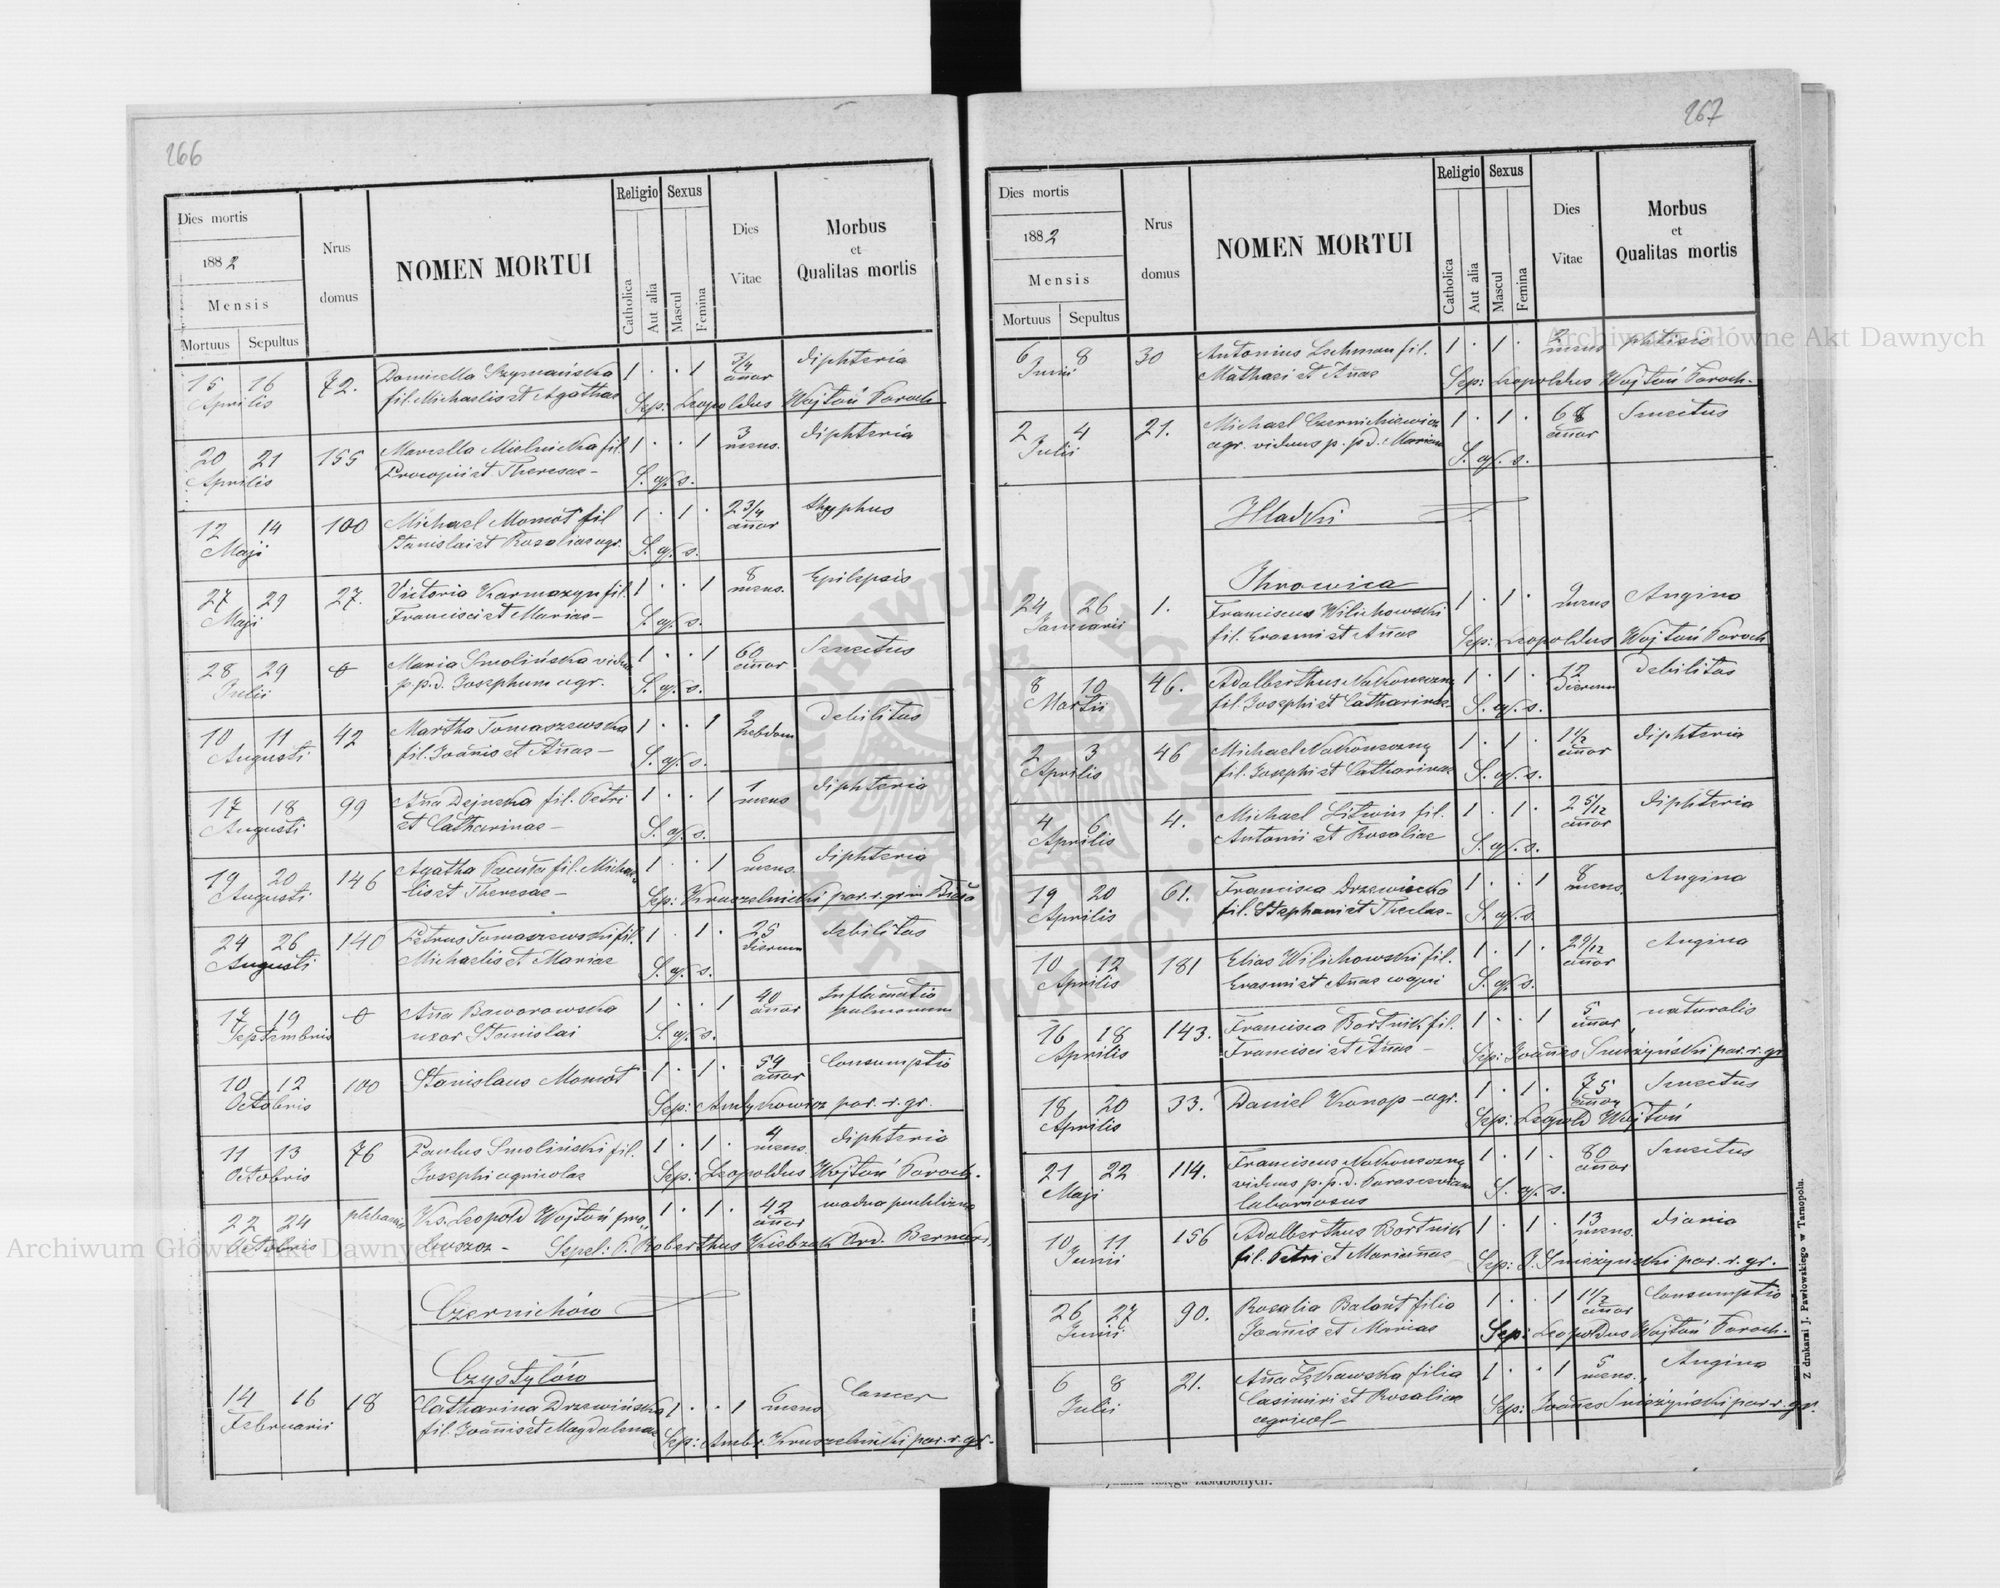 266
Dies mortis
1882
Mensis
Mortuus Sepultus
Nrus domus
NOMEN MORTUI
Religio
Catholica
Aut alia
Sexus
Mascul
Femina
Dies Vitae
Morbus
et
Qualitas mortis
15 16 72. Domicella Szymańska 1 . . 1 3/4 diphteria
Aprilis fil. Michaelis et Agathae annor
Sep: Leopoldus Wojtoń Paroch.
20 21 155 Marcella Mielnicka fil. 1 . . 1 3 diphteria
Aprilis Procopii et Theresae – mens.
S. q. s.
12 14 100 Michael Momot fil 1 . 1 . 2 3/4 thyphus
Maji Stanislai et Rosaliae agr. annor
S. q. s.
27 29 27. Victoria Karmazyn fil. 1 . . 1 8 Epilepsis
Maji Francisci et Mariae – mens.
S. q. s.
28 29 Maria Smolińska vidua 1 . . 1 60 Senectus
Julii p. p. d. Josephum agr. annor
S. q. s.
10 11 42 Martha Tomaszewska 1 . . 1 2 debilitas
Augusti fil. Joannis et Annae – hebdom
S. q. s.
17 18 99 Anna Dejneka fil. Petri 1 . . 1 1 diphteria
Augusti et Catharinae – mens
S. q. s.
19 20 146 Agatha fil. Michae 1 . . 1 6 diphteria
Augusti lis et Theresae – mens.
Sep: Kruszelnicki par. r. gr. in
24 26 140 Petrus Tomaszewski fil. 1 . 1 . 25 debilitas
Augusti Michaelis et Mariae dierum
S. q. s.
17 19 Anna Baworowska 1 . . 1 40 Inflamatio
Septembris uxor Stanislai annor pulmonum
S. q. s.
10 12 100 Stanislaus Momot 1 . 1 . 54 Consumptio
Octobris annor
Sep: par. r. gr.
11 13 76 Paulus Smoliński fil. 1 . 1 . 4 diphteria
Octobris Josephi agricolae mens.
Sep: Leopoldus Wojtoń Paroch.
22 24 plebania Ks. Leopold Wojtoń pro 1 . 1 . 42 wodna puchlizna
Octobris boszcz – annor
Sepel: P. Robertus Ord. Bernard.
Czernichów
Czystylów
14 16 18 Catharina Drzewińska 1 . . 1 6 Cancer
Februarii fil. Joannis et Magdalenae mens
Sep: Ambr. Kruszelnicki par. r. gr.
267
Dies mortis
1882
Mensis
Mortuus Sepultus
Nrus domus
NOMEN MORTUI
Religio
Catholica
Aut alia
Sexus
Mascul
Femina
Dies Vitae
Morbus
et
Qualitas mortis
6 8 30 Antonius Lehman fil. 1 . 1 . 2 phtisis
Junii Mathaei et Annae mens
Sep: Leopoldus Wojtoń Paroch.
2 4 21. Michael Czernichiewicz 1 . 1 . 68 Senectus
Julii agr. viduus p. p. d. Mariam annor
S. q. s.
Hladki
Ihrowica
24 26 1. Franciscus Wilichowski 1 . 1 . 9 Angina
Januarii fil. Erasmi et Annae mens
Sep: Leopoldus Wojtoń Paroch
8 10 46. Adalberthus Nakoneczny 1 . 1 . 12 debilitas
Martii fil. Josephi et Catharinae dierum
S. q. s.
2 3 46 Michael Nakoneczny 1 . 1 . 1 1/2 diphteria
Aprilis fil. Josephi et Catharinae annor
S. q. s.
4 6 4. Michael Litwin fil. 1 . 1 . 2 5/12 diphteria
Aprilis Antonii et Rosaliae annor
S. q. s.
19 20 61. Francisca Drzewiecka 1 . . 1 8 Angina
Aprilis fil. Stephani et Theclae – mens
S. q. s.
10 12 181 Elias Wilichowski fil. 1 . 1 . 2 9/12 Angina
Aprilis Erasmi et Annae annor
S. q. s.
16 18 143. Francisca Bortnik fil. 1 . . 1 5 naturalis
Aprilis Francisci et Annae – annor
Sep: Joannes Śnieżyński par. r. gr
18 20 33. Daniel Konop – agr. 1 . 1 . 75 Senectus
Aprilis annor
Sep: Leopold Wojtoń
21 22 114. Franciscus Nakoneczny 1 . 1 . 80 Senectus
Maji viduus p. p. d. Parasceviam annor
laboriosus S. q. s.
10 11 156 Adalberthus Bortnik 1 . 1 . 13 diaria
Junii fil. Petri et Mariannae mens.
Sep: J. Śnieżyński par. r. gr.
26 27 90. Rosalia Balant filia 1 . . 1 1 1/2 Consumptio
Junii Joannis et Mariae annor
Sep: Leopoldus Wojtoń Paroch.
6 8 21. Anna filia 1 . . 1 5 Angina
Julii Casimiri et Rosaliae mens.
agricol Sep: Joannes Śnieżyński par. r. gr.
Z drukarni J. Pawłowskiego w Tarnopolu.
księga zaślubionych.
Archiwum Główne Akt Dawnych
Archiwum Główne Akt Dawnych
ARCHIWUM GŁÓWNE AKT DAWNYCH